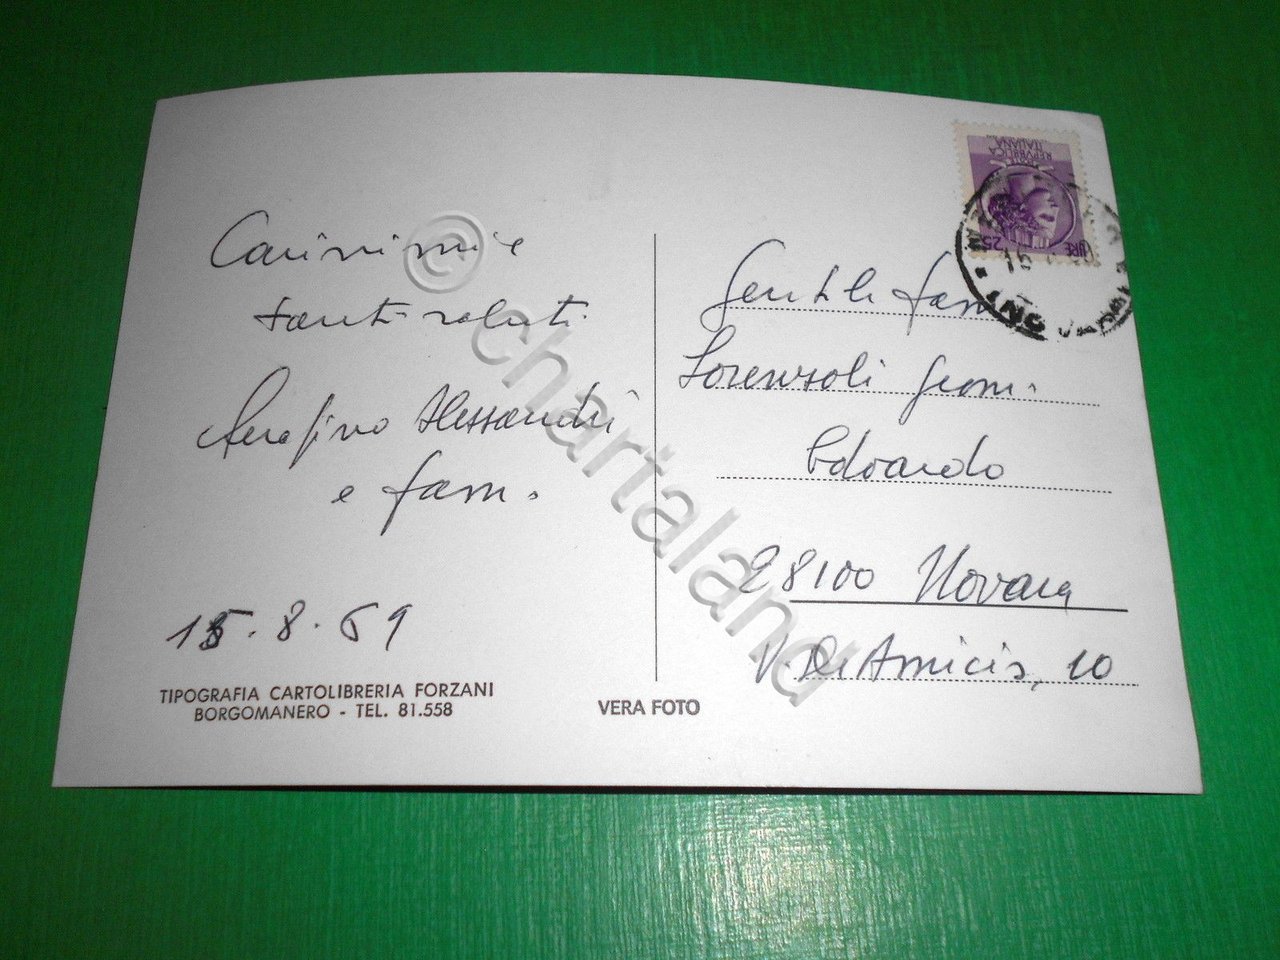 Carissimi e
tanti saluti
Serafino Alessandri
e fam.
15.8.69
TIPOGRAFIA CARTOLIBRERIA FORZANI
BORGOMANERO - TEL. 81.558
VERA FOTO
REPVBBLICA
ITALIANA
LIRE 25
Gentile fam.
Lorenzoli Geom.
Edoardo
28100 Novara
V. De Amicis, 10
© chartaland